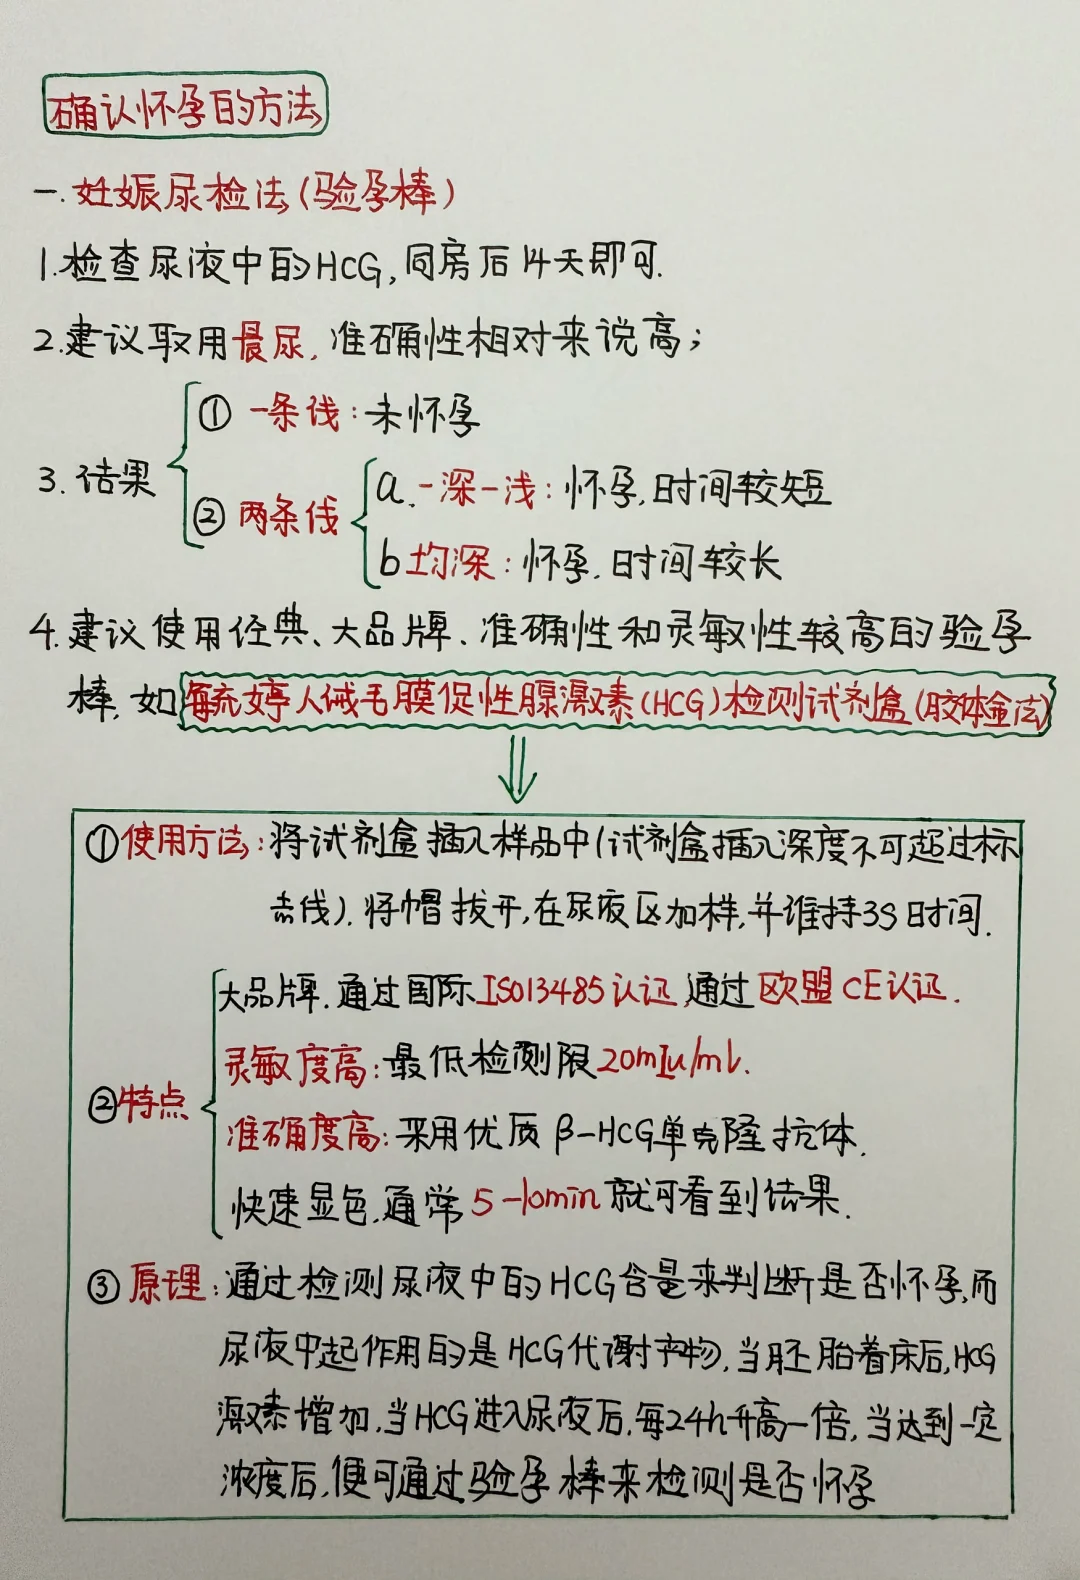 确认怀孕的方法
一.妊娠尿检法(验孕棒)
1.检查尿液中的HCG,同房后14天即可.
2.建议取用晨尿,准确性相对来说高;
① 一条线:未怀孕
3.结果
② 两条线
a.一深一浅:怀孕,时间较短
b均深:怀孕,时间较长
4.建议使用经典、大品牌、准确性和灵敏性较高的验孕
棒,如毓婷人绒毛膜促性腺激素(HCG)检测试剂盒(胶体金法)
①使用方法:将试剂盒插入样品中(试剂盒插入深度不可超过标
志线).将帽拔开,在尿液区加样,并维持3S时间.
②特点
大品牌.通过国际ISO13485认证,通过欧盟CE认证.
灵敏度高:最低检测限20mIu/ml.
准确度高:采用优质β-HCG单克隆抗体.
快速显色,通常5-10min就可看到结果.
③原理:通过检测尿液中的HCG含量来判断是否怀孕,而
尿液中起作用的是HCG代谢产物,当胚胎着床后,HCG
激素增加,当HCG进入尿液后,每24h升高一倍,当达到一定
浓度后,便可通过验孕棒来检测是否怀孕